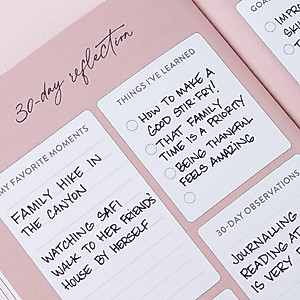 30-day reflection
MY FAVORITE MOMENTS
FAMILY HIKE IN
THE CANYON
WATCHING SAFI
WALK TO HER FRIENDS'
HOUSE BY HERSELF
THINGS I'VE LEARNED
HOW TO MAKE A
GOOD STIR-FRY!
THAT FAMILY
TIME IS A PRIORITY
BEING THANKFUL
FEELS AMAZING
GOALS
30-DAY OBSERVATIONS
JOURNALLING
READING AT